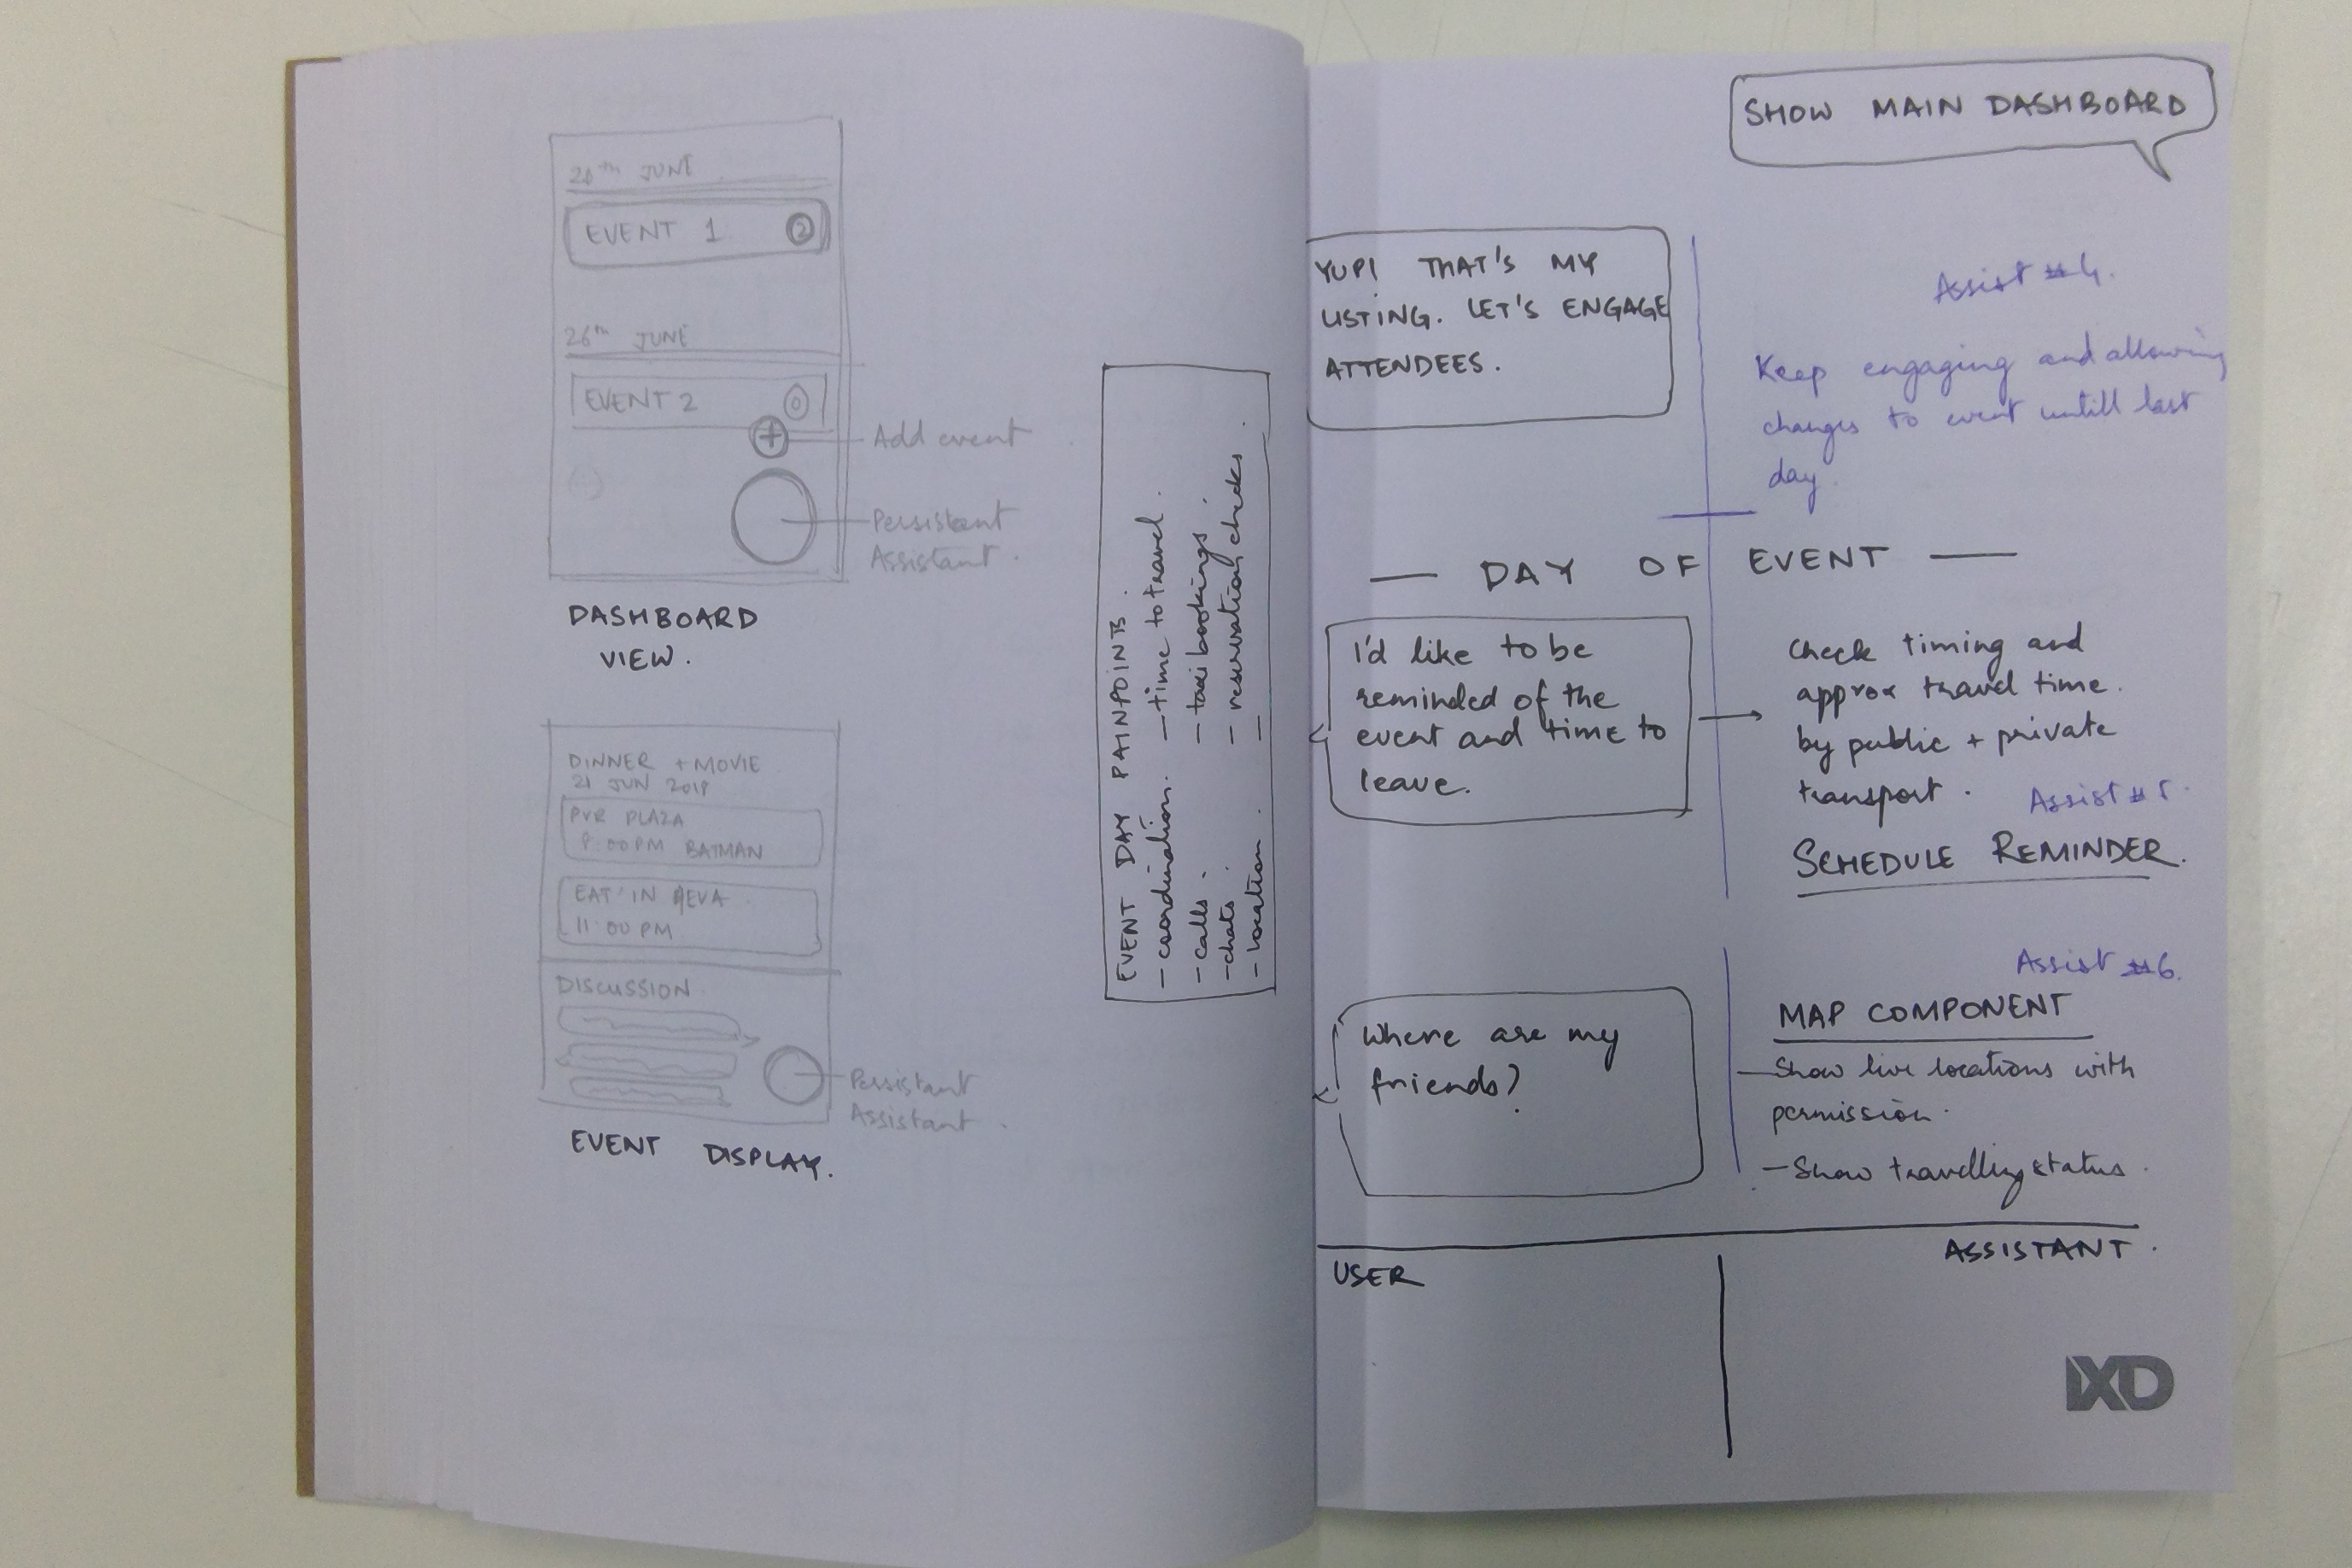 EVENT 1 2
26th JUNE
EVENT 2 0
+
Add event
Persistant
Assistant.
DASHBOARD
VIEW.
DINNER + MOVIE
21 JUN 2018
PVR PLAZA
8:00 PM BATMAN
EAT IN
11:00 PM
DISCUSSION
Persistant
Assistant
EVENT DISPLAY.
EVENT DAY PAINPOINTS.
- coordination. - time to travel.
- calls. - taxi bookings.
- chats. - reservation checks.
- location. -
SHOW MAIN DASHBOARD
YUP! THAT'S MY
LISTING. LET'S ENGAGE
ATTENDEES.
Assist #4.
Keep engaging and allowing
changes to event untill last
day.
— DAY OF EVENT —
I'd like to be
reminded of the
event and time to
leave.
check timing and
approx travel time.
by public + private
transport.
Assist #5.
SCHEDULE REMINDER.
Where are my
friends?
Assist #6.
MAP COMPONENT
- Show live locations with
permission.
- Show travelling status.
USER
ASSISTANT.
IXD